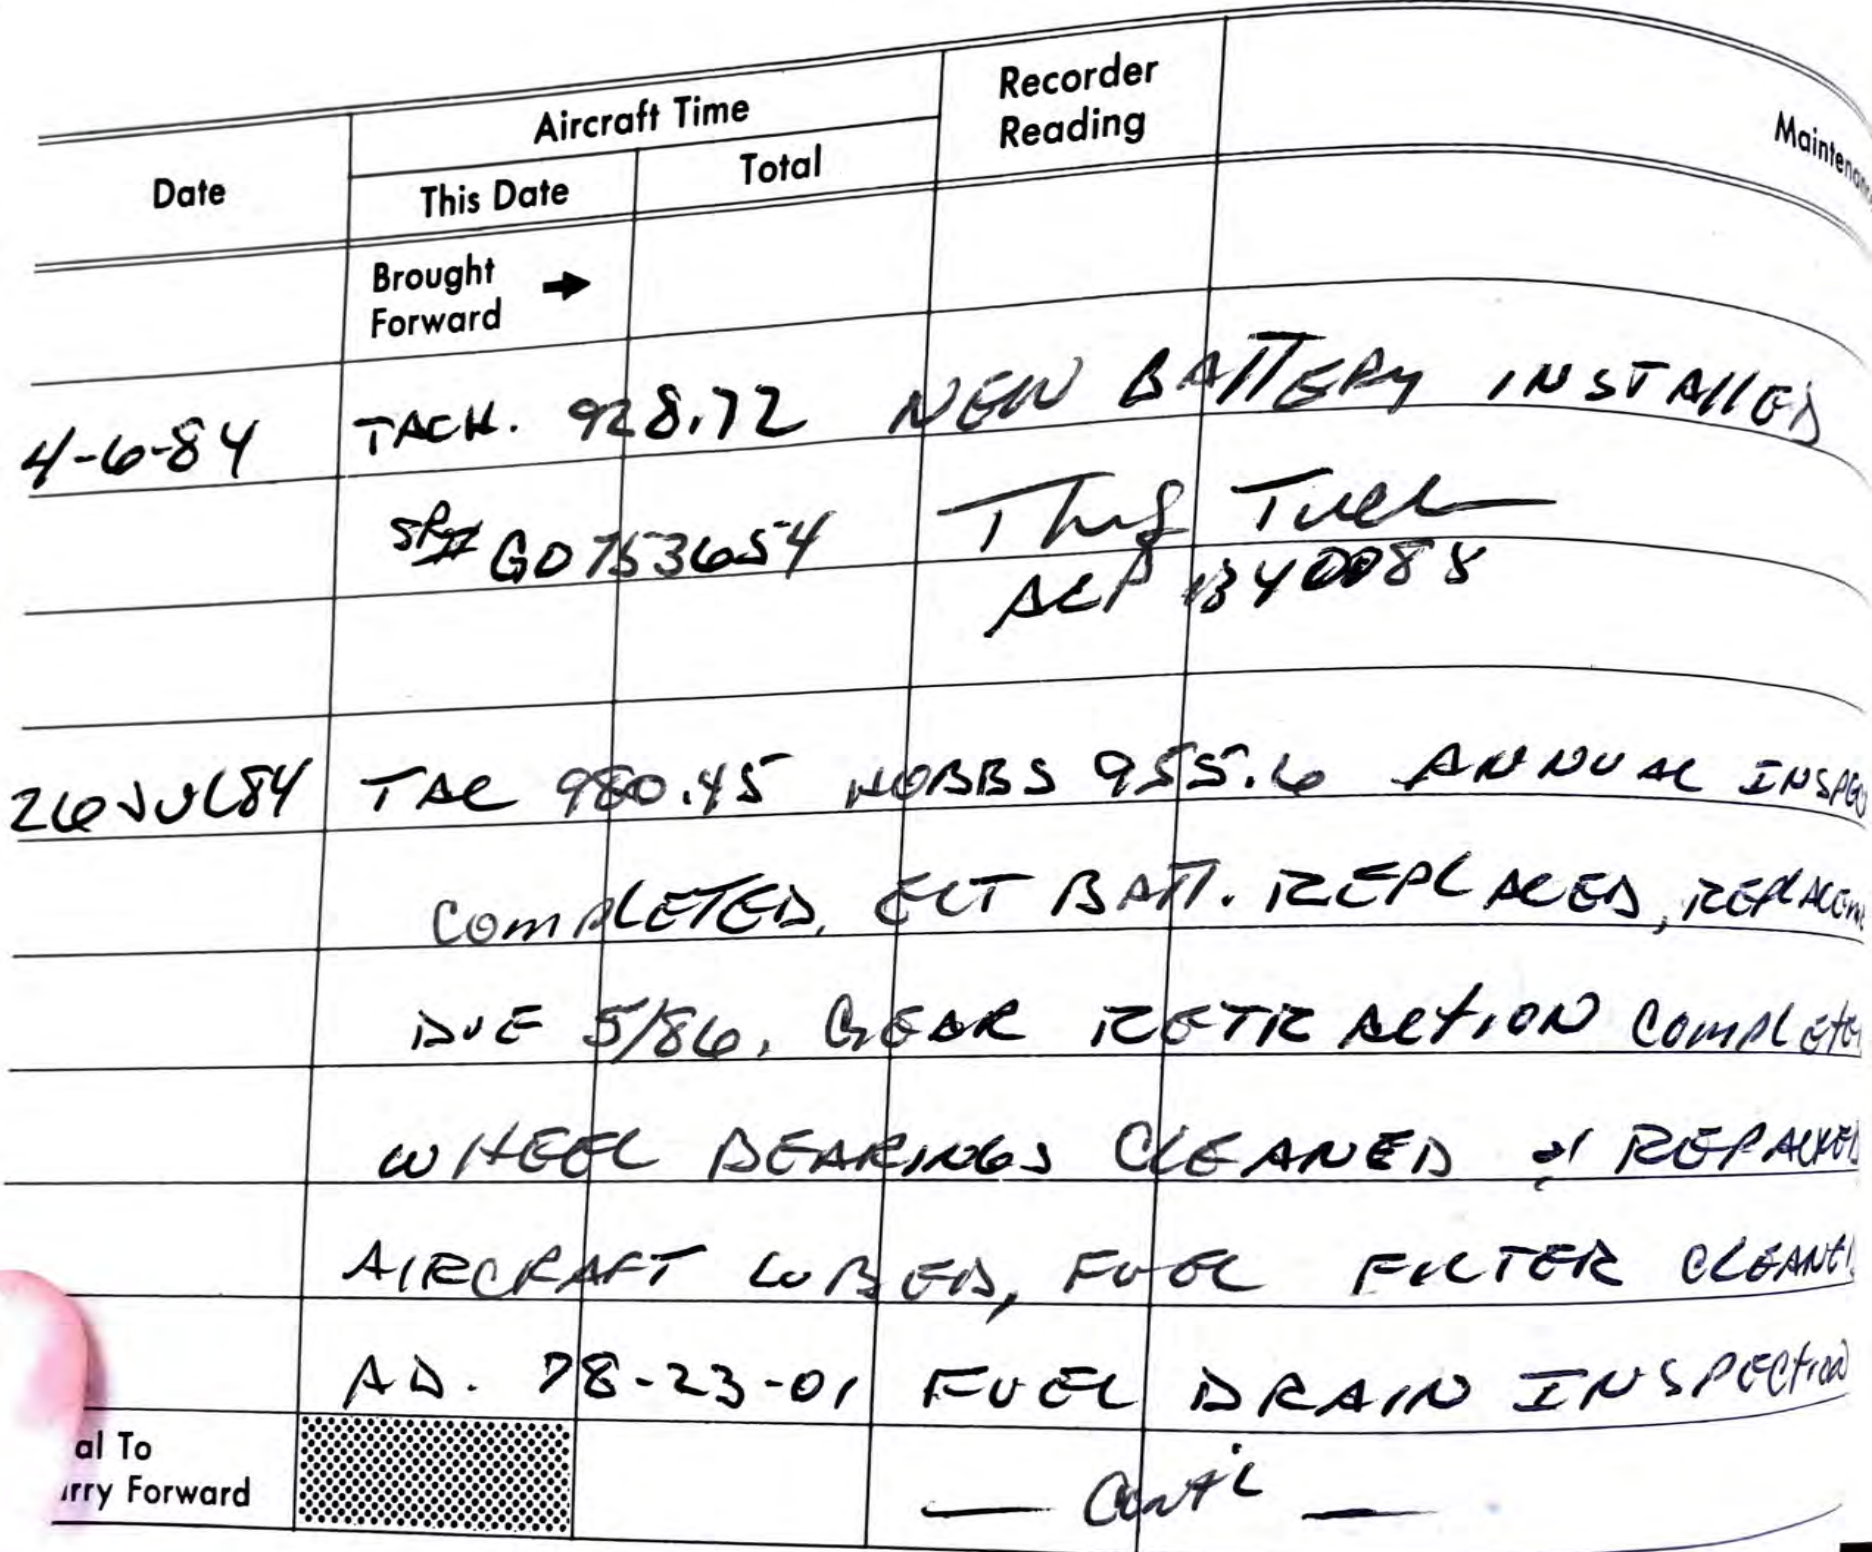 Aircraft Time
Recorder
Reading
Date
This Date
Total
Brought
Forward
4-6-84 TACH. 928.72 NEW BATTERY INSTALLED
GO753654
A&P
26 JUL 84 TAC 980.45 HOBBS 955.6 ANNUAL INSPEC
COMPLETED, ELT BATT. REPLACED, REPLACEM
DUE 5/86, GEAR RETRACTION COMPLETE
WHEEL BEARINGS CLEANED & REPACKED
AIRCRAFT LUBED, FUEL FILTER CLEANED
AD. 78-23-01 FUEL DRAIN INSPECTION
al To
rry Forward